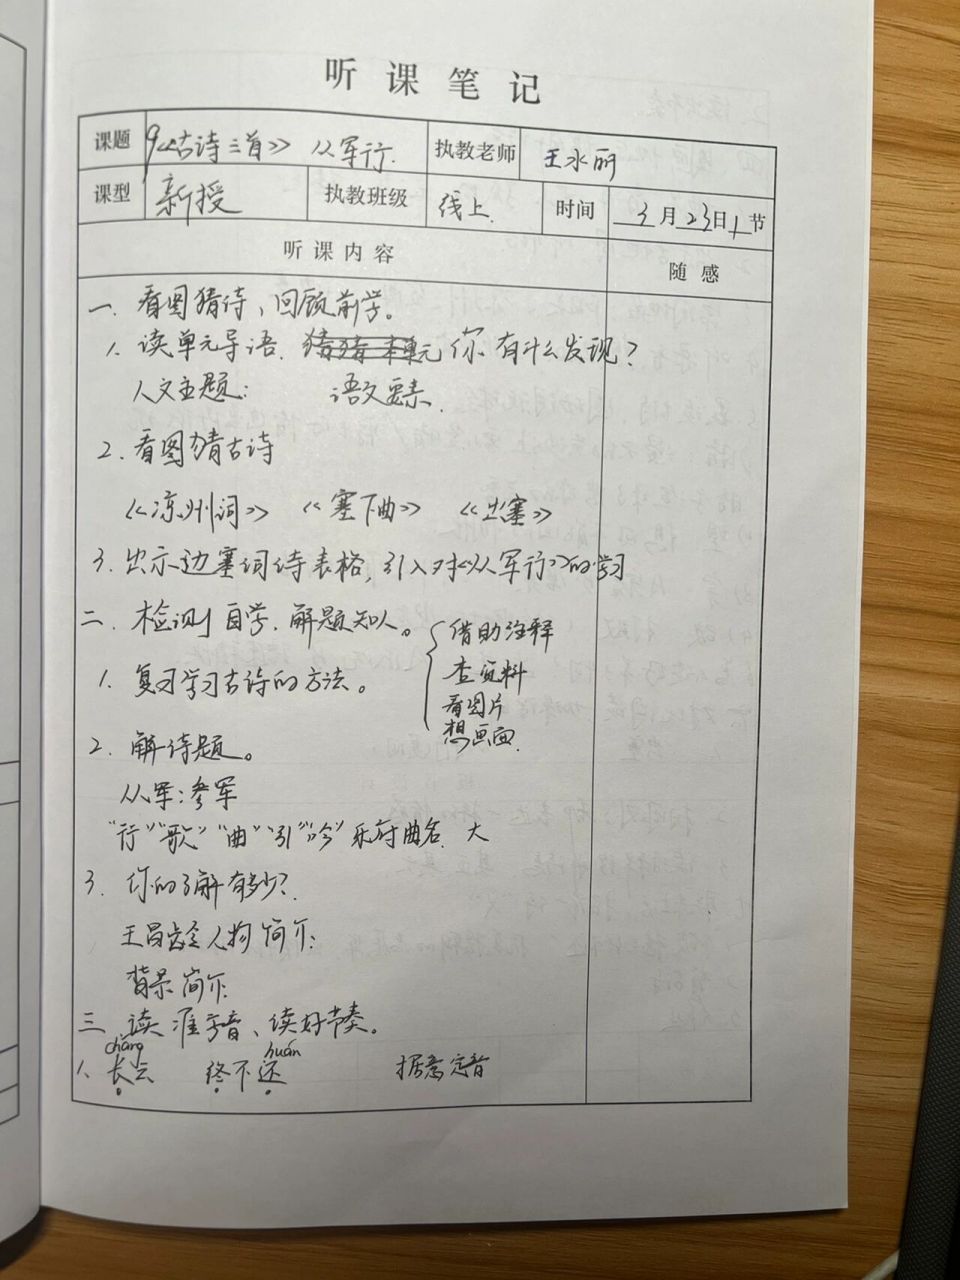 听课笔记
课题 9《古诗三首》 从军行. 执教老师 王水丽
课型 新授 执教班级 线上. 时间 3月23日1节
听课内容 随感
一. 看图猜诗、回顾前学。
1. 读单元导语. 你有什么发现?
人文主题: 语文要素.
2. 看图猜古诗
《凉州词》 《塞下曲》 《出塞》
3. 出示边塞词诗表格, 引入对《从军行》的学习
二. 检测自学. 解题知人。
借助注释
查资料
看图片
想画面.
1. 复习学习古诗的方法。
2. 解诗题。
从军: 参军
"行""歌""曲""引""吟" 乐府曲名. 大
3. 你的了解有多少?
王昌龄人物简介:
背景简介:
三 读准字音、读好节奏。
cháng huán
1. 长云 终不还 据意定音